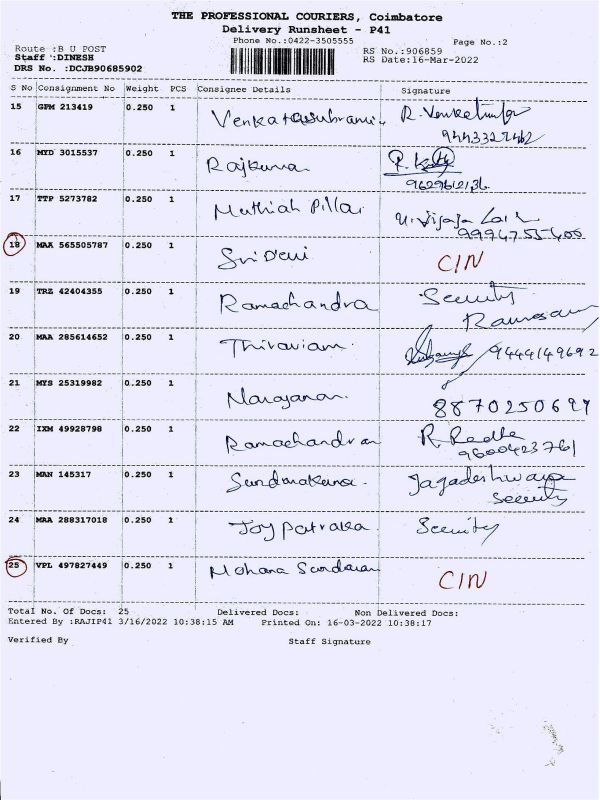 THE PROFESSIONAL COURIERS, Coimbatore
Delivery Runsheet - P41
Phone No.:0422-3505555
Page No.:2
Route :B U POST
RS No.:906859
Staff :DINESH
RS Date:16-Mar-2022
DRS No. :DCJB90685902
S No Consignment No Weight PCS Consignee Details Signature
15 GPM 213419 0.250 1 R. 
9443327462
16 MYD 3015537 0.250 1 Rajkumar R.
17 TTP 5273782 0.250 1 Muthiah Pillai
9994755400
18 MAA 565505787 0.250 1 Sri Devi C/N
19 TRZ 42404355 0.250 1 Ramachandra Security
20 MAA 285614652 0.250 1 Thiraviam. 9444149692
21 MYS 25319982 0.250 1 Narayanan. 8870250697
22 IXM 49928798 0.250 1 Ramachandran R.
9600423761
23 MAN 145317 0.250 1 Jagadeshwara
Security
24 MAA 288317018 0.250 1 Security
25 VPL 497827449 0.250 1 Mohana Sundaram C/N
Total No. Of Docs: 25 Delivered Docs: Non Delivered Docs:
Entered By :RAJIP41 3/16/2022 10:38:15 AM Printed On: 16-03-2022 10:38:17
Verified By Staff Signature